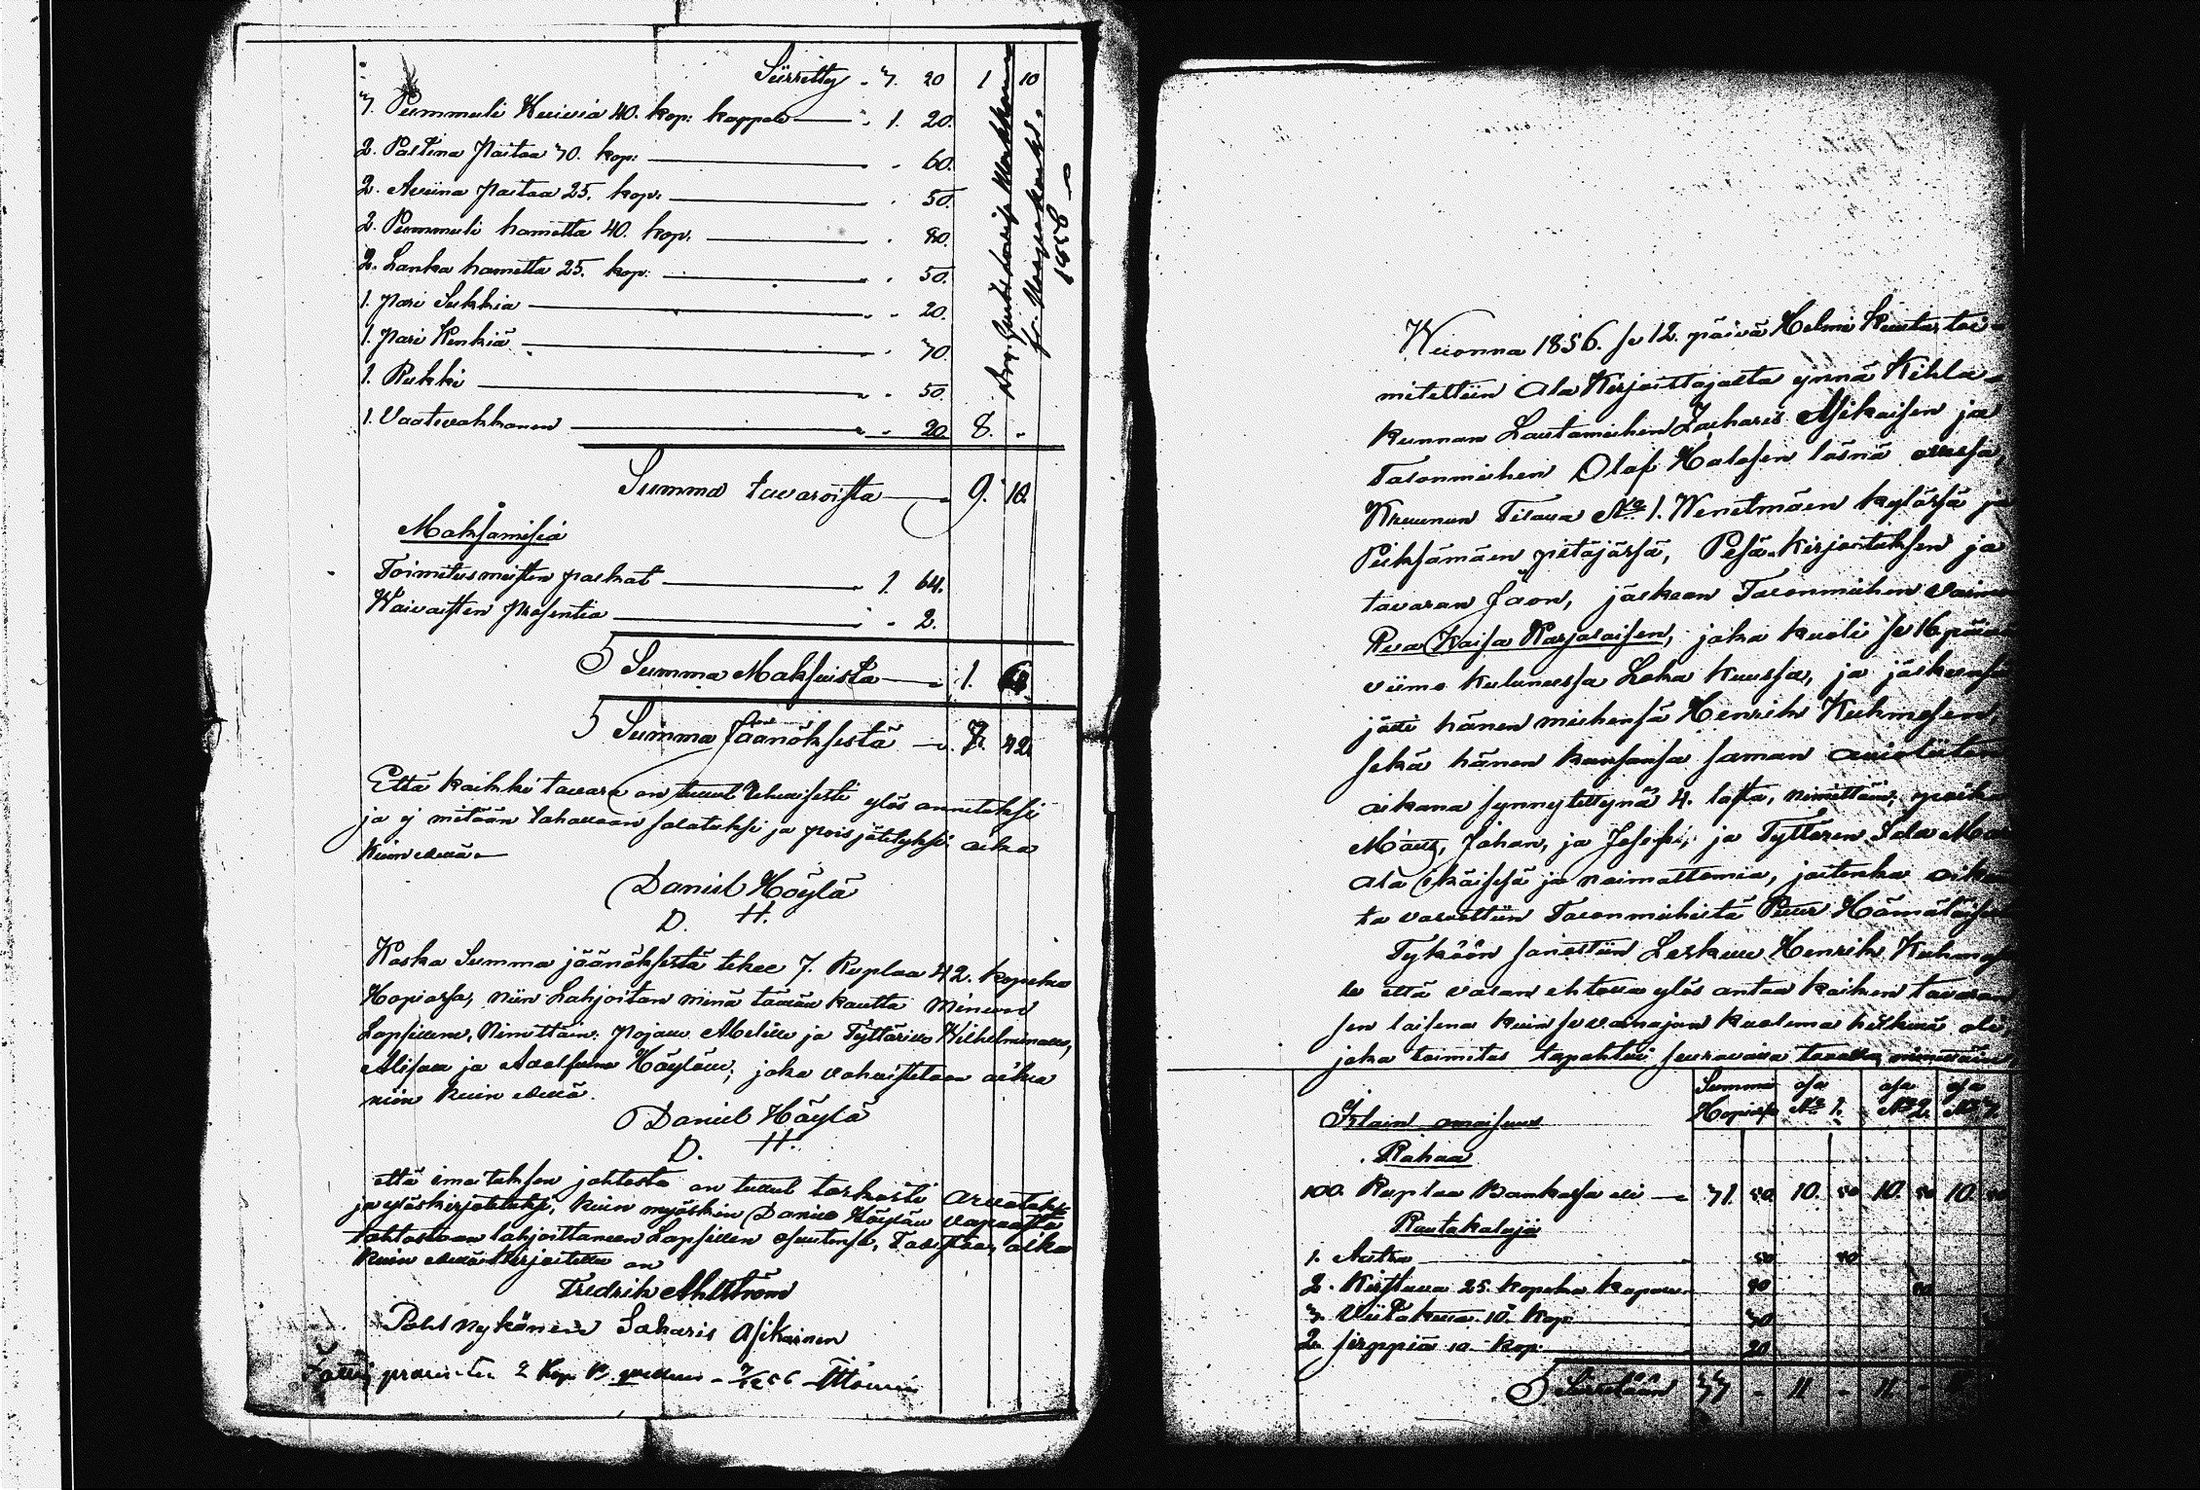 Siirretty 3. 20 1 10
3. Pummuli Huivia 40. kop: kappale 1. 20.
2. Paltina Paitaa 30. kop: 60.
2. Aivina Paitaa 25. kop. 50.
2. Pummuli hametta 40. kop. 80.
2. Lanka hametta 25. kop: 50.
1. Pari Sukkia 20.
1. Pari Kenkiä 70.
1. Rukki 50.
1. Vaatevakkanen 20. 8. "
Summa tavaroista 9. 10.
Maksamisia
Toimitusmiesten palkat 1. 64.
Waivaisten Prosentia 2.
Summa Maksuista 1.
Summa Jäänöksestä 7. 42.
Että kaikki tavara on tullut rehellisesti ylös annetuksi
ja ej mitään tahallaan salatuksi ja pois jätetyksi aika
kuin ellä
Daniel Höylä
D. H.
Koska Summa jäänöksestä tekee 7. Ruplaa 42. kopekka
Hopiassa, niin Lahjoitan minä tämän kautta Minun
Lapsillene, Nimittäin: Pojalle Abelille ja Tyttärille Wilhelminalle,
Alisalle ja Höylälle; joka vahvistetaan aika
niin kuin ellä.
Daniel Höylä
D. H.
että ima tuksen johtosta on tullut tarkasti arvatuksi
ja ylöskirjoitetuksi, kuin myöskin Daniel Höylän vapaasta
tahtostaan lahjoittaneen Lapsillen osuutensa, Todistaa, aika
kuin ellä kirjoitettu on
Fredrik Ahlström
Pohl Nykänen Saharis Asikainen
2 Kop.
1856
Wuonna 1856. se 12. päivä Helmi Kuuta, toi-
mitettiin Ala Kirjoittajalta ynnä Kihla-
kunnan Lautamiehen Zacharis Asikaisen ja
Talonmiehen Olof Halosen läsnä ollessa,
Kruunun Tilalla No 1. Wenetmäen kylässä ja
Pieksämäen pitäjässä, Pesä-Kirjoituksen ja
tavaran Jaon, jälkeen Talonmiehen vaimo
Kaisa Karjalaisen, joka kuoli se 16 päivä
viime kulunessa Loka Kuussa, ja jälkeensä
jätti hänen miehensä Henrik Kuhmosen,
sekä hänen kanssansa saman avioliiton
aikana synnytettynä 4. lasta, nimittäin; poika
Johan, ja Joseph; ja Tyttären
Ala ikäisesä ja naimattomia, joitenka oikeu
ta valvottiin Talonmieheltä Petter Hämäläisen
Tyköön sanottiin Leskelle Henrik Kuhmose
le että valan ehtolla ylös antaa kaiken tavaran
sen laisena kuin se vainajan kuoleman hetkenä oli,
joka toimitus tapahtui seuravalla tavalla, nimittäin;
Irtain omaisuus Summa Hopiassa osa No 1. osa No 2. osa No 3.
Rahaa
100. Ruplaa Bankossa eli 31. 50. 10. 50 10. 50 10. 50
Rautakaluja
1. Autra 50 50
2. Kirstua 25. kopekka kapale 50 50
3. Viitaketta 10. kop: 30
2. sirppiä 10. kop: 20
Siirretään 33 - 11 - 11 -